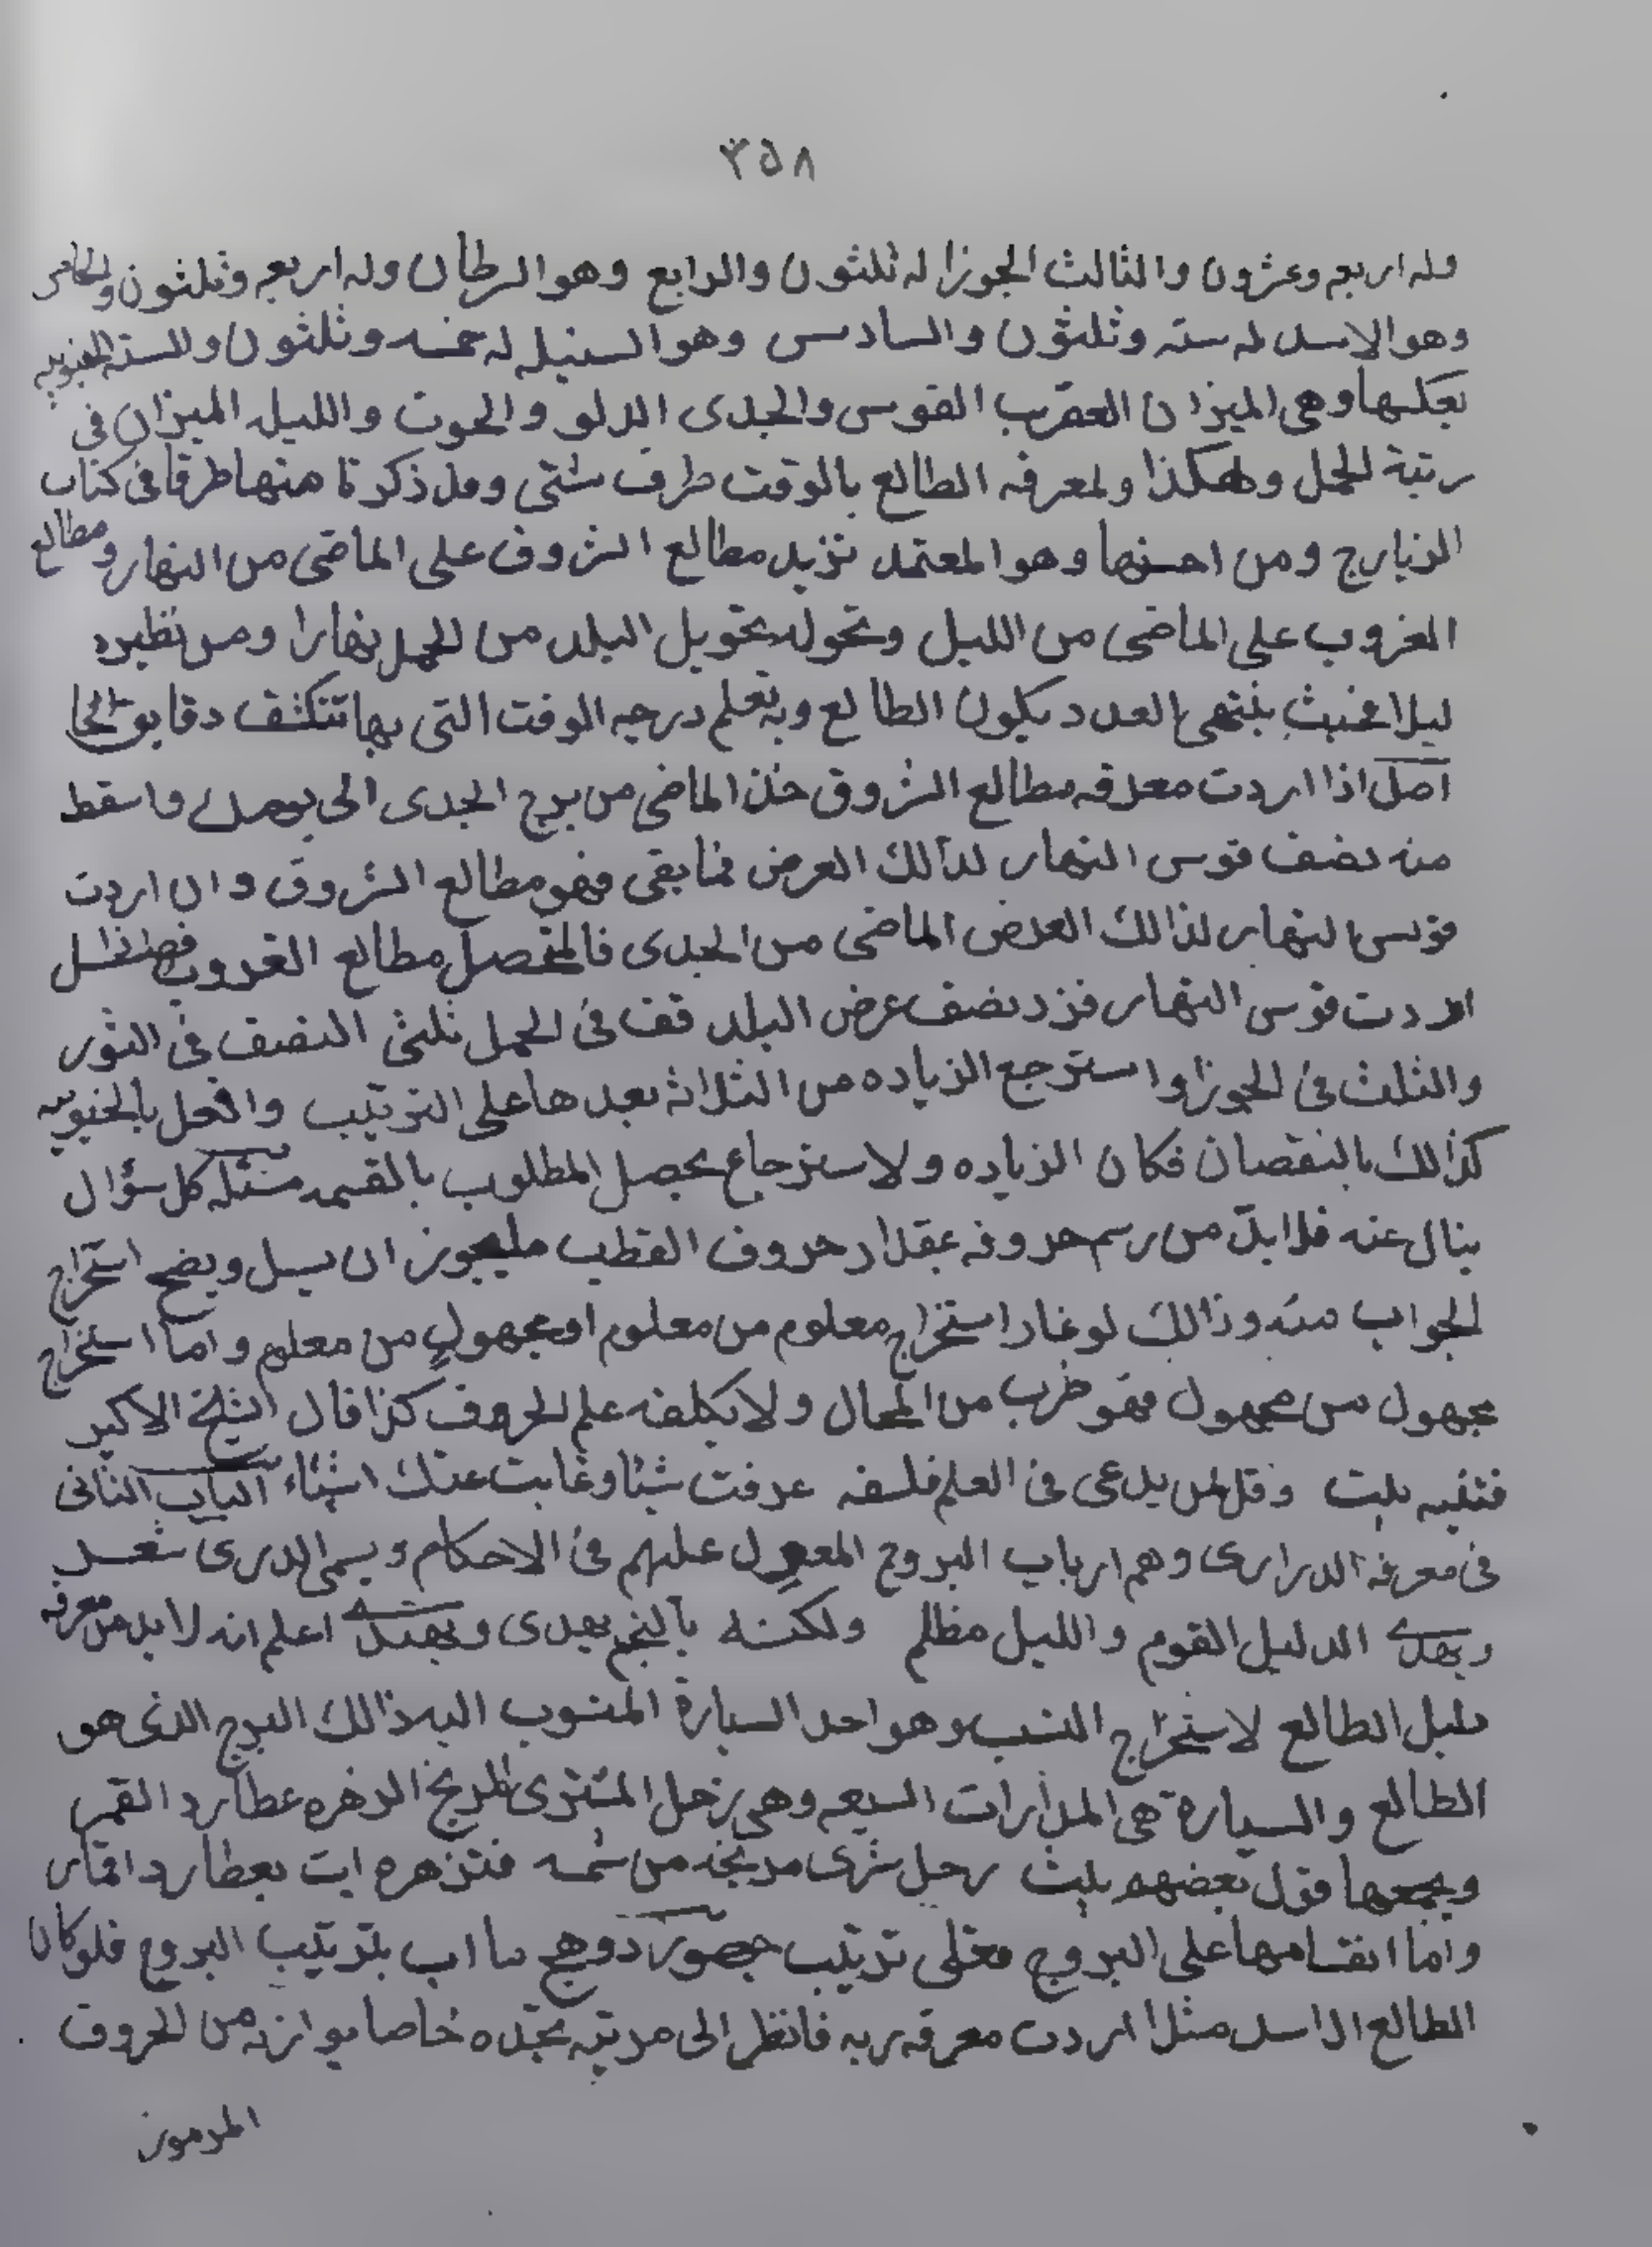 ٣٥٨
وله اربعه وعشرون والثالث الجوزا له ثلثون والرابع وهو السرطان وله اربعه وثلثون والخامس
وهو الاسد له سته وثلثون والسادس وهو السنبله له خمسه وثلثون والسته الجنوبيه
بعكسها وهى الميزان العقرب القوس والجدى الدلو والحوت والليله الميزان فى
رتبة الحمل وهكذا ولمعرفه الطالع بالوقت طرق شتى وقد ذكرنا منها طرقا فى كتاب
الزيارج ومن احسنها وهو المعتمد تزيد مطالع الشروق على الماضى من النهار ومطالع
الغروب على الماضى من الليل وتحوله بتحويل البلد من الحمل نهارا ومن نظيره
ليلا فحيث ينتهى العدد يكون الطالع وبه تعلم درجه الوقت التى بها تنكشف دقايق
اصل اذا اردت معرفه مطالع الشروق خذ الماضى من برج الجدى الى يومك واسقط
منه نصف قوس النهار لذالك العرض فما بقى فهو مطالع الشروق وان اردت
قوس النهار لذالك العرض الماضى من الجدى فالمتحصل مطالع الغروب
اردت قوس النهار فزد نصف عرض البلد قف فى الحمل ثلثى النصف فى الثور
والثلث فى الجوزا واسترجع الزياده من الثلاثه بعدها على الترتيب وافعل بالجنوبيه
كذالك بالنقصان فكان الزياده ولاسترجاع يحصل المطلوب بالقسمه مسئله كل سؤال
ينال عنه فلا بد من رسم حروفه بمقدار حروف القطب مليجوز ان يسل ويضح استخراج
الجواب منه وذالك استخراج معلوم من معلوم او مجهول من معلوم واما استخراج
مجهول من مجهول فهو ضرب من المحال ولا يكلفه علم الحروف كذا قال الشيخ الاكبر
فتفيه بيت وقل لمن يدعى فى العلم فلسفه عرفت شيئا وغابت عنك اشياء الباب الثانى
فى معرفه الدرارى وهم ارباب البروج المعول عليهم فى الاحكام ويسمى الدرى
وبهذ الدليل القوم والليل مظلم ولكنه بالنجم يهدى ويهتد اعلم انه لابد من معرفه
دليل الطالع لاستخراج النسب وهو احد السيارة المنسوب اليه ذالك البرج الذى هو
الطالع والسيارة هى المدارات السبعه وهى زحل المشترى المريخ الزهره عطارد القمر
ويجمعها قول بعضهم بيت زحل شرى مريخه من شمسه فتزهرت بعطارد اقمار
واما انقسامها على البروج فعلى ترتيب دوهج بترتيب البروج فلو كان
الطالع الاسد مثلا اردت معرفه ربه فانظر الى مرتبته تجده خاصا يوازنه من الحروف
المرموز